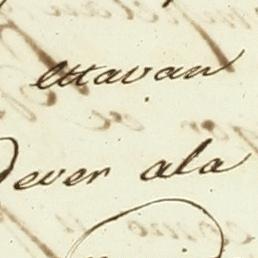 ettavan
dever ala